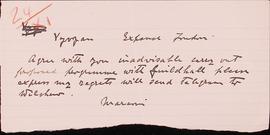 24/11
Expanse London
Agree with you inadvisable carry out
proposed programme with Guildhall please
express my regrets will send telegram to
Marconi